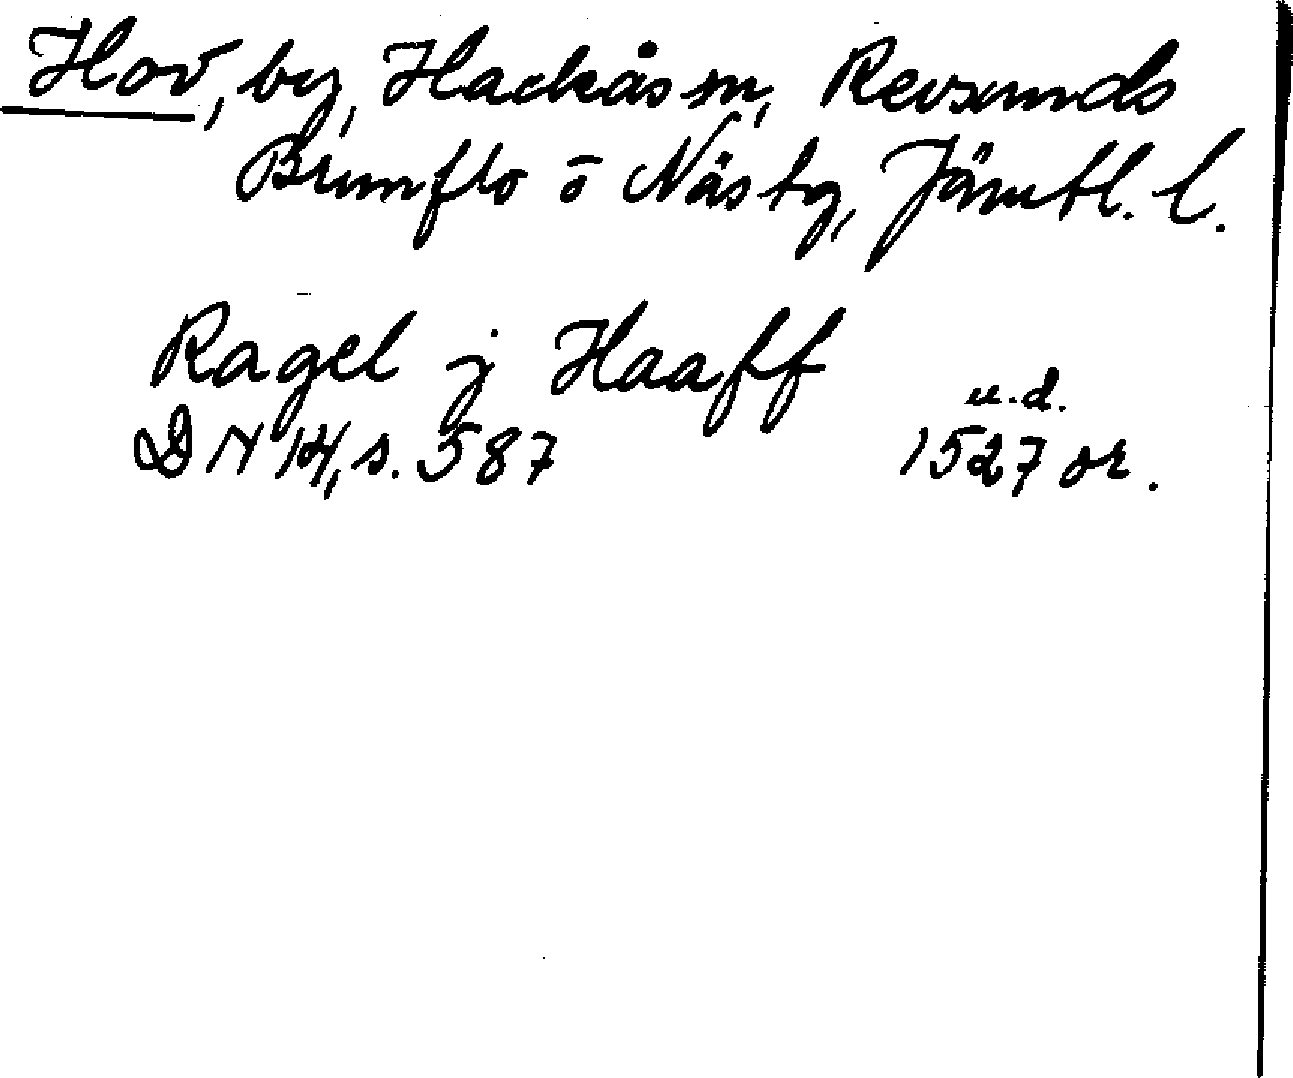 Hov, by, Hackås sn, Revsunds
Brunflo o Näs tg, Jämtl. l.
Ragel j Haaff
u.d.
DN 14, s. 587 1527 or.